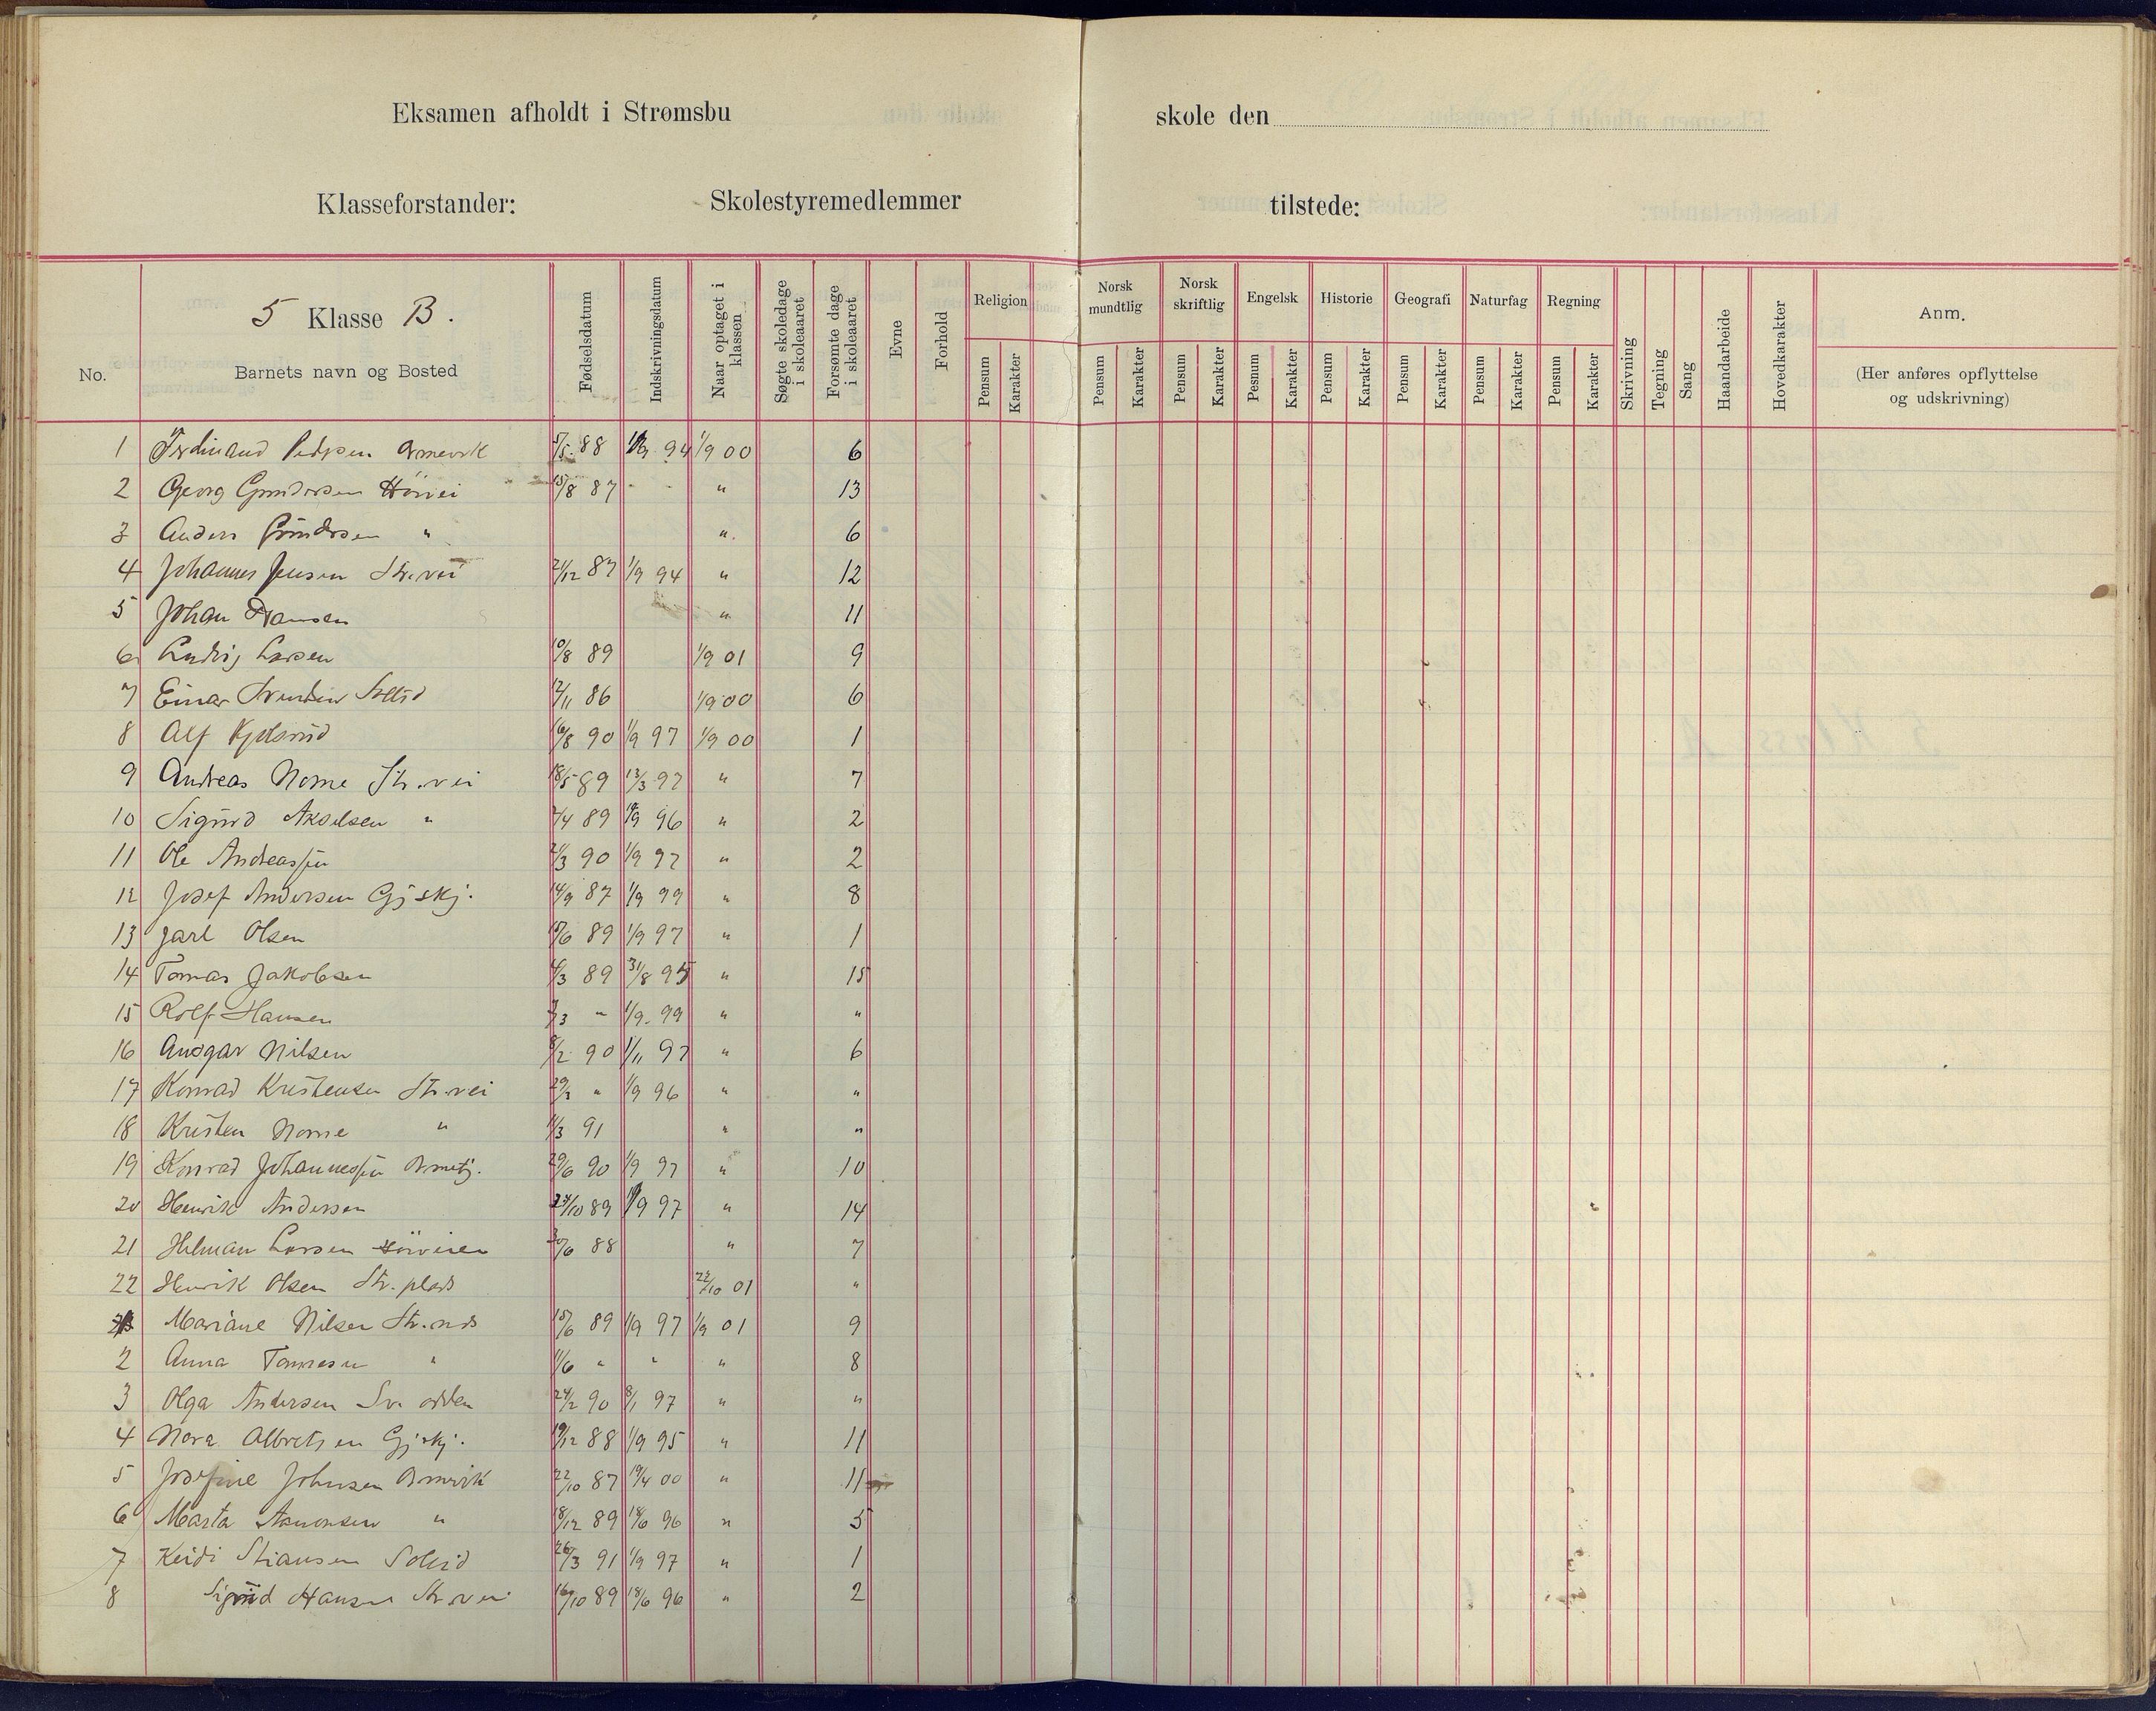 Eksamen afholdt i Strømsbu skole den
Klasseforstander: Skolestyremedlemmer tilstede:
No.
5 Klasse B.
Barnets navn og Bosted
Fødselsdatum
Indskrivningsdatum
Naar optaget i klassen
Søgte skoledage i skoleaaret
Forsømte dage i skoleaaret
Evne
Forhold
Religion Pensum Karakter
Norsk mundtlig Pensum Karakter
Norsk skriftlig Pensum Karakter
Engelsk Pesnum Karakter
Historie Pensum Karakter
Geografi Pensum Karakter
Naturfag Pensum Karakter
Regning Pensum Karakter
Skrivning
Tegning
Sang
Haandarbeide
Hovedkarakter
Anm.
(Her anføres opflyttelse og udskrivning)
1 Ferdinand Pedersen 88 94 1/9 00 6
2 Georg Gundersen 15/8 87 - - " 13
3 Anders Gundersen " ". 6
4 Johannes Jensen Str.vei 21/12 87 1/9 94 " 12
5 Johan Hansen " 11
6 Ludvig Larsen 10/8 89 1/9 01 9
7 Einar 12/11 86 1/9 00 6
8 Alf 16/8 90 1/9 97 1/9 00 1
9 Andreas Nome Str.vei 18/5 89 13/3 97 " 7
10 Sigurd Akselsen " 2/4 89 96 " 2
11 Ole Andreassen 21/3 90 1/9 97 " 2
12 Josef Andersen Gjskj. 14/9 87 1/9 99 " 8
13 Jarl Olsen 89 1/9 97 " 1
14 Tomas Jakobsen 89 31/8 95 " 15
15 Rolf Hansen " 1/9 99 " "
16 Ansgar Nilsen 8/2 90 1/11 97 " 6
17 Konrad Kristensen Str.vei " 1/9 96 " "
18 Kristen Nome " 91 " "
19 Konrad Johannessen 29/6 90 1/9 97 " 10
20 Henrik Andersen 89 1/9 97 " 14
21 Hilmar Larsen 30/6 88 " 7
22 Henrik Olsen Str. plads 22/10 01 "
Mariane Nilsen 89 1/9 97 1/9 01 9
2 Anna " 1/6 " " " 8
3 Olga Andersen 24/2 90 8/1 97 " "
4 Nora Albretsen Gjskj. 19/12 88 1/9 95 " 11
5 Josefine Johnsen 22/10 87 19/4 00 " 11
6 Marta " 18/12 89 18/6 96 " 5
7 26/3 91 1/9 97 " 1
8 Hansen Str.vei 16/10 89 18/6 96 " 2